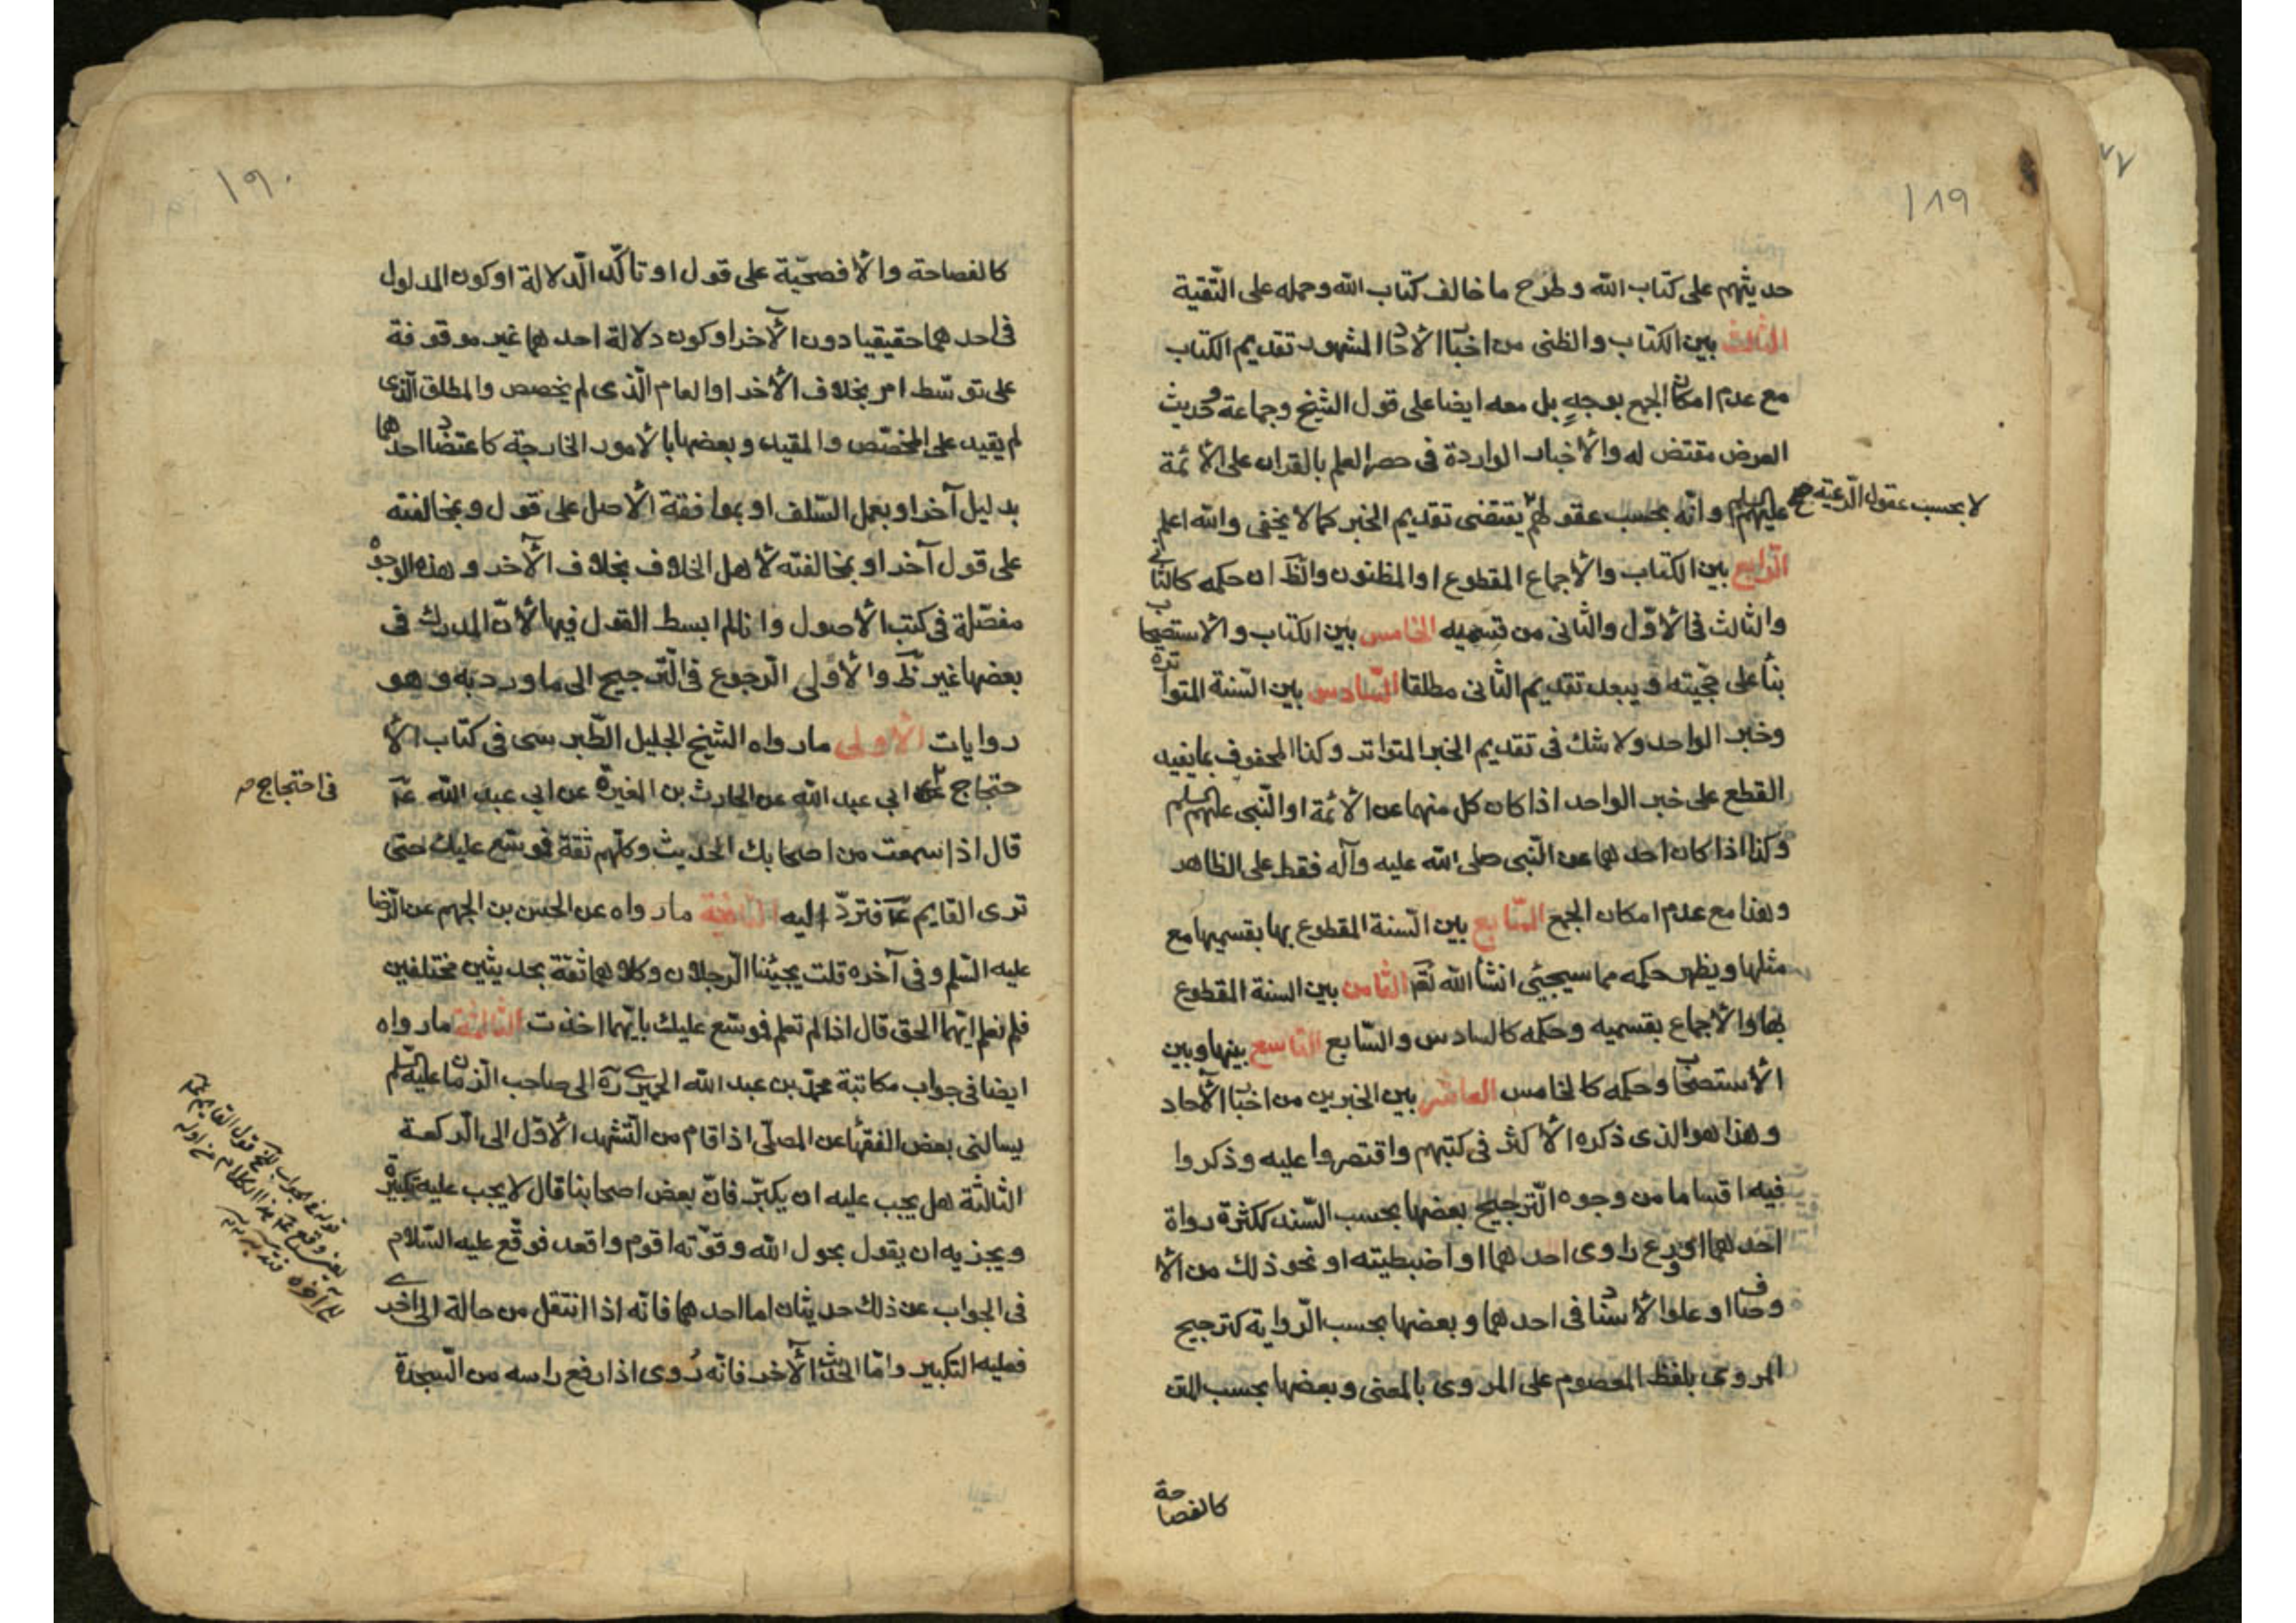 ١٨٩
حديثهم على كتاب الله وطرح ما خالف كتاب الله وحمله على التّقية
الثالث بين الكتاب والظنى من اخبار الآحاد المشهور تقديم الكتاب
مع عدم امكان الجمع بوجهٍ بل معه ايضا على قول الشيخ وجماعة وحديث
العرض مقتض له والأخبار الواردة فى حصر العلم بالقران على الأئمة
عليهم السلم وانّه بحسب عقولهم يقتضى تقديم الخبر كما لا يخفى والله اعلم
لا بحسب عقول الرّعية صح
الرّابع بين الكتاب والأجماع المقطوع او المظنون والظّ ان حكمه كالثانى
والثالث فى الأوّل والثّانى من قسميه الخامس بين الكتاب والاستصحاب
بنأ على حجّيته ويبعد تقديم الثّانى مطلقا السّادس بين السّنة المتواترة
وخبر الواحد ولا شك فى تقديم الخبر المتواتر وكذا المحفوف بما يفيد
القطع على خبر الواحد اذا كان كل منهما عن الأئمة او النّبى عليهم السلم
وكذا اذا كان احدهما عن النّبى صلى الله عليه وآله فقط على الظاهر
وهذا مع عدم امكان الجمع السّابع بين السّنة المقطوع بها بقسميها مع
مثلها ويظهر حكمه مما سيجيئ انشأ الله تعَ الثامن بين السنة المقطوع
بها والأجماع بقسميه وحكمه كالسادس والسّابع التاسع بينها وبين
الأستصحاب وحكمه كالخامس العاشر بين الخبرين من اخبار الآحاد
وهذا هو الذى ذكره الأكثر فى كتبهم واقتصروا عليه وذكروا
فيه اقساما من وجوه التّرجيح بعضها بحسب السّند ككثرة رواة
احدهما او ورع راوى احدهما او اضبطيته او نحو ذلك من الأ
وصاف او علو الأسناد فى احدهما وبعضها بحسب الرّواية كترجيح
المروى بلفظ المعصوم على المروى بالمعنى وبعضها بحسب المتن
كالفصاحة
١٩٠
كالفصاحة والأفصحيّة على قول او تأكّد الّدلالة او كون المدلول
فى احدهما حقيقيا دون الآخر او كون دلالة احدهما غير موقوفة
على توسّط امر بخلاف الأخر او العام الّذى لم يخصص والمطلق الّذى
لم يقيد على المخصّص والمقيد وبعضها بالأمور الخارجة كاعتضاد احدهما
بدليل آخر او بعمل السّلف او بموافقة الأصل على قول وبمخالفته
على قول آخر او بمخالفته لأهل الخلاف بخلاف الآخر وهذه الوجوه
مفصّلة فى كتب الأصول وانا لم ابسط القول فيها لأنّ المدرك فى
بعضها غير ظّ والأولى الّرجوع فى التّرجيح الى ما ورد به وهو
روايات الأولى ما رواه الشيخ الجليل الطّبرسى فى كتاب الأ
حتجاج عن ابي عبد الله عن الحارث بن المغيرة عن ابي عبد الله عَ
فى احتجاج
قال اذا سمعت من اصحابك الحديث وكلّهم ثقة فوسّع عليك حتى
ترى القايم عَ فتردّ اليه الثانية ما رواه عن الحسن بن الجهم عن الّرضا
عليه السّلم وفى آخره قلت يجيئنا الّرجلان وكلاهما ثقة بحديثين مختلفين
فلم نعلم ايّهما الحق قال اذا لم تعلم فوسّع عليك بايّهما اخذت الثالثة ما رواه
ايضا فى جواب مكاتبة محمّد بن عبد الله الحميرى رّه الى صاحب الزّمان عليه السّلم
يسالنى بعض الفقهأ عن المصلّى اذا قام من التّشهد الأوّل الى الّركعة
الثالثة هل يجب عليه ان يكبّر فانّ بعض اصحابنا قال لا يجب عليه تكبيرة
ويجزيه ان يقول بحول الله وقوّته اقوم واقعد فوقّع عليه السّلام
فى الجواب عن ذلك حديثان اما احدهما فانّه اذا انتقل من حالة الى اخرى
فعليه التكبير وامّا الحديث الآخر فانّه رُوى اذا رفع راسه من السّجدة